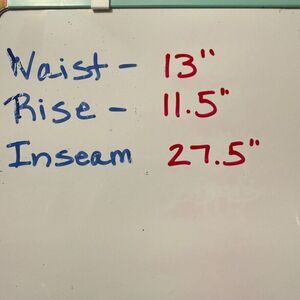 Waist - 13"
Rise - 11.5"
Inseam 27.5"